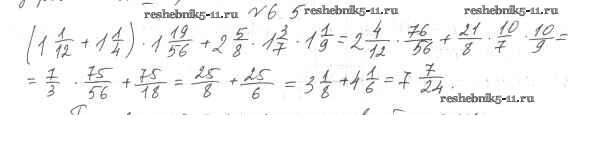 reshebnik5-11.ru №6.5 reshebnik5-11.ru reshebnik5-11.ru
(1 1/12 + 1 1/4) · 1 19/56 + 2 5/8 · 1 3/7 · 1 1/9 = 2 4/12 · 76/56 + 21/8 · 10/7 · 10/9 =
= 7/3 · 75/56 + 75/18 = 25/8 + 25/6 = 3 1/8 + 4 1/6 = 7 7/24.
reshebnik5-11.ru